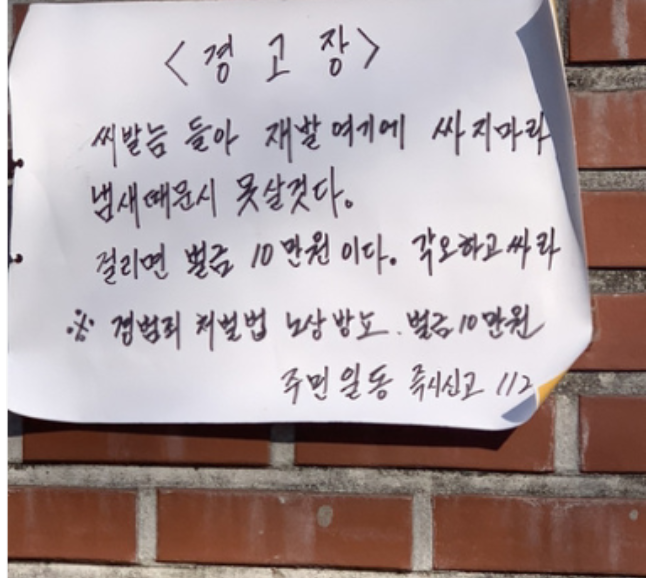 <경고장>
씨발늠 들아 재발 여기에 싸지마라
냄새때문시 못살겻다.
걸리면 벌금 10만원이다. 각오하고 싸라
※ 경범죄 처벌법 노상방뇨. 벌금10만원
주민일동 즉시신고 112